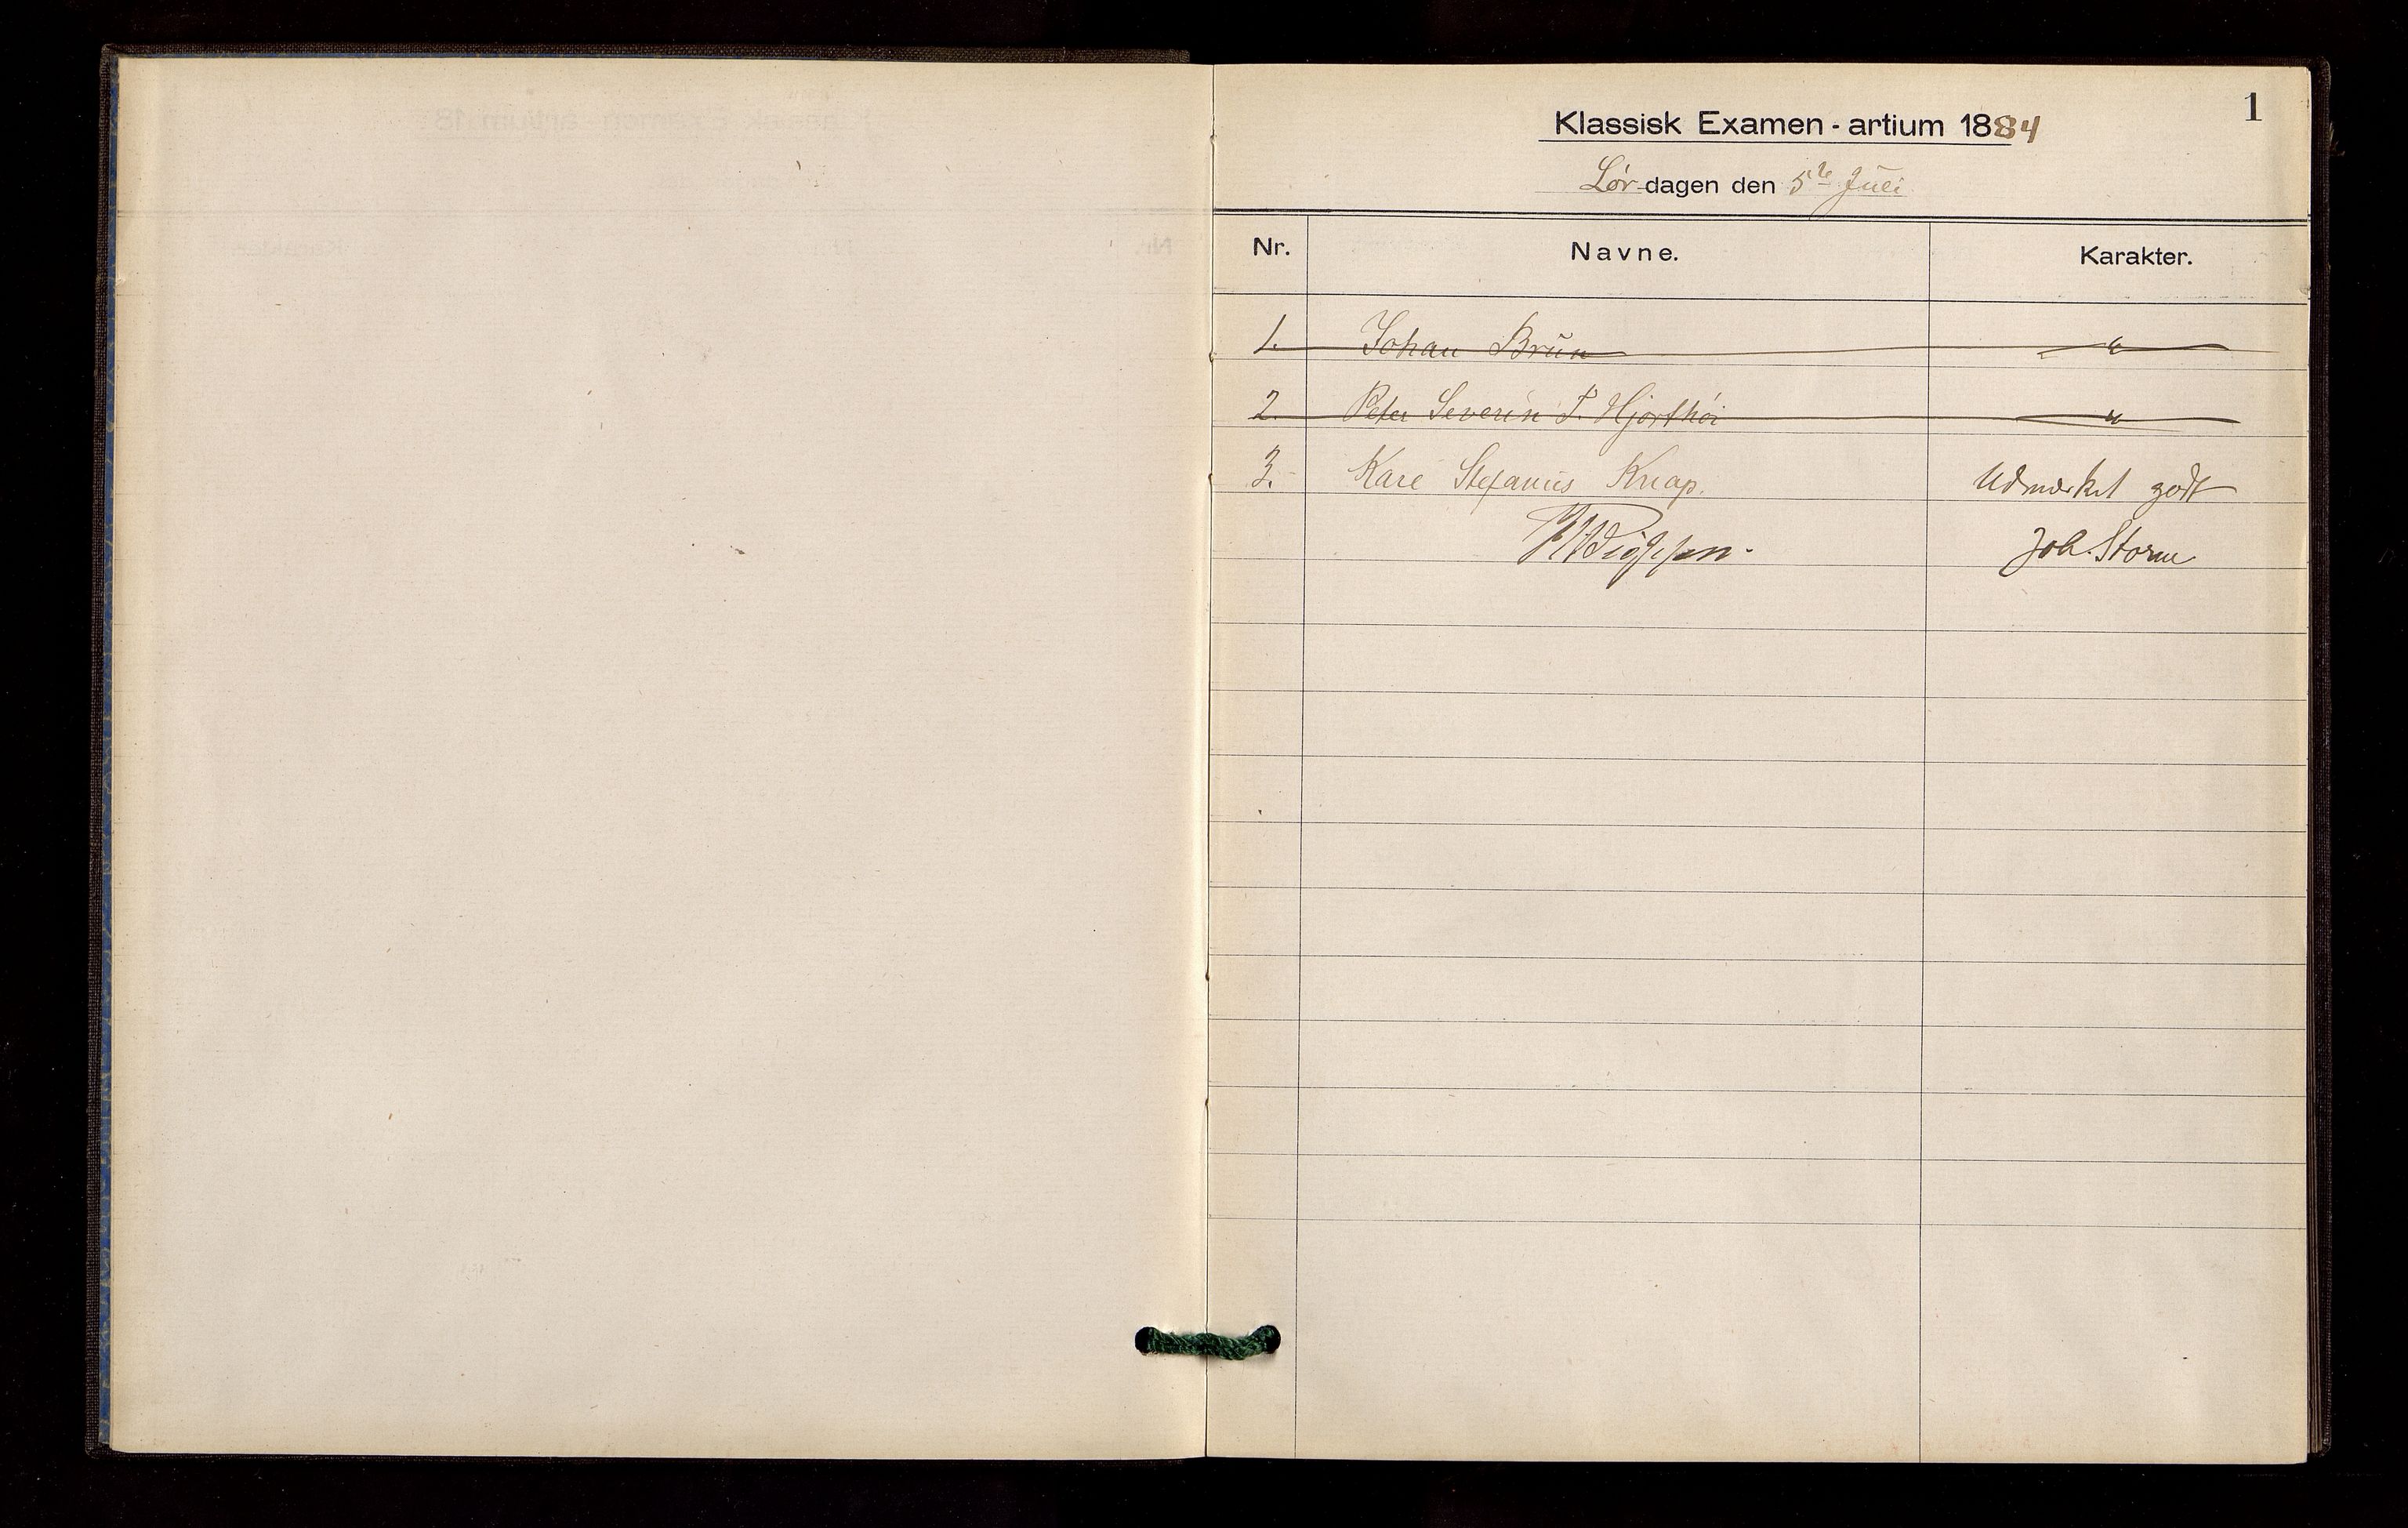 1
Klassisk Examen-artium 1884
Lør-dagen den 5te Juli
Nr. Navne. Karakter.
1. Johan Brun "
2. Peter Severin F. Hjorthöi "
3. Karl Stefanus Knap. Udmærket godt
Joh. Storm